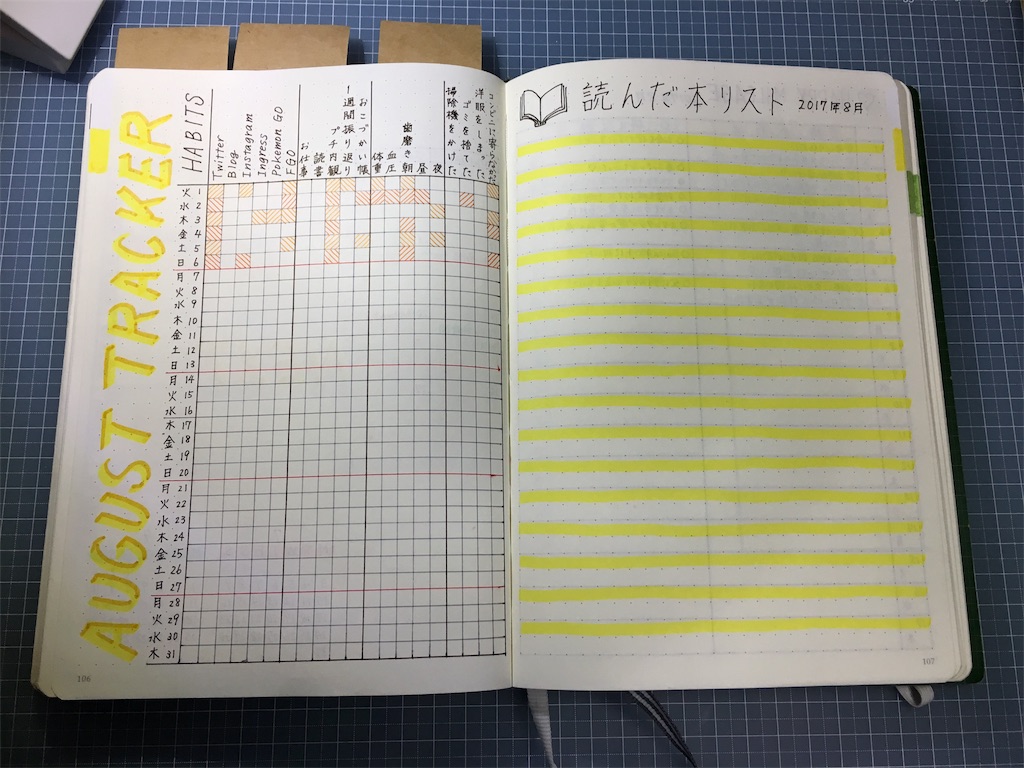 AUGUST TRACKER
HABITS
Twitter
Blog
Instagram
Ingress
Pokemon GO
FGO
お仕事
読書
プチ内観
1週間振り返り
おこづかい帳
体重
血圧
歯磨き 朝
昼
夜
掃除機をかけた
ゴミを捨てた
洋服をしまった
コンビニに寄らなかった
火 1
水 2
木 3
金 4
土 5
日 6
月 7
火 8
水 9
木 10
金 11
土 12
日 13
月 14
火 15
水 16
木 17
金 18
土 19
日 20
月 21
火 22
水 23
木 24
金 25
土 26
日 27
月 28
火 29
水 30
木 31
106
読んだ本リスト 2017年8月
107